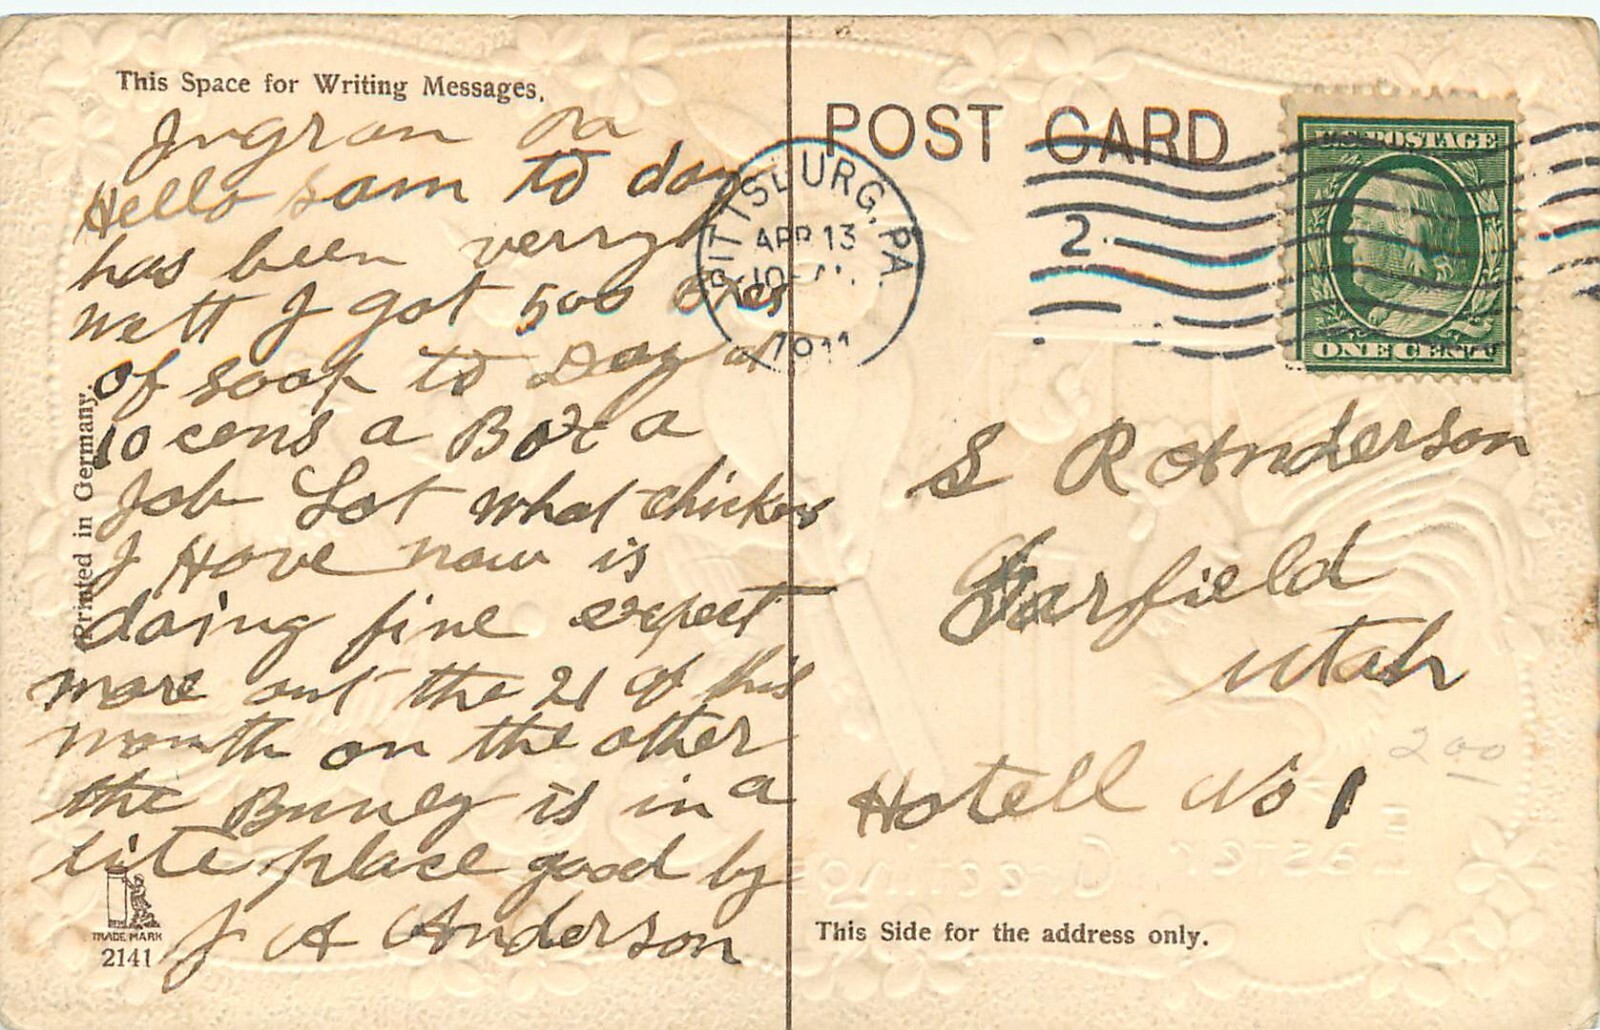 This Space for Writing Messages.
Ingram Pa
Hello Sam to day
has been verry
wett I got 500 Boxes
of soap to Day at
10 cens a Box a
Job Lot what chickens
I Have now is
doing fine expect
more out the 21 of this
month on the other
the Buney is in a
tite place good by
J A Anderson
Printed in Germany.
TRADE MARK
2141
POST CARD
PITTSBURG, PA.
APR 13
1911
2
U.S. POSTAGE
ONE CENT
S R Anderson
Garfield
Utah
Hotell No 1
2 00
Easter Greetings
This Side for the address only.